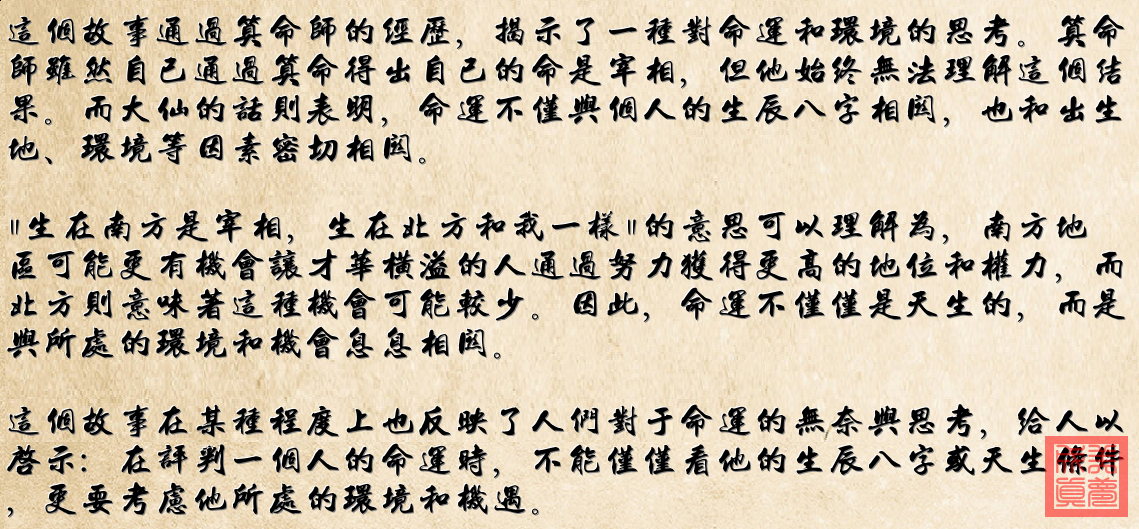 這個故事通過算命師的經歷，揭示了一種對命運和環境的思考。算命
師雖然自己通過算命得出自己的命是宰相，但他始終無法理解這個結
果。而大仙的話則表明，命運不僅與個人的生辰八字相関，也和出生
地、環境等因素密切相関。
"生在南方是宰相，生在北方和我一樣"的意思可以理解為，南方地
區可能更有機會讓才華橫溢的人通過努力獲得更高的地位和權力，而
北方則意味著這種機會可能較少。因此，命運不僅僅是天生的，而是
與所處的環境和機會息息相関。
這個故事在某種程度上也反映了人們對于命運的無奈與思考，給人以
啓示：在評判一個人的命運時，不能僅僅看他的生辰八字或天生條件
，更要考慮他所處的環境和機遇。